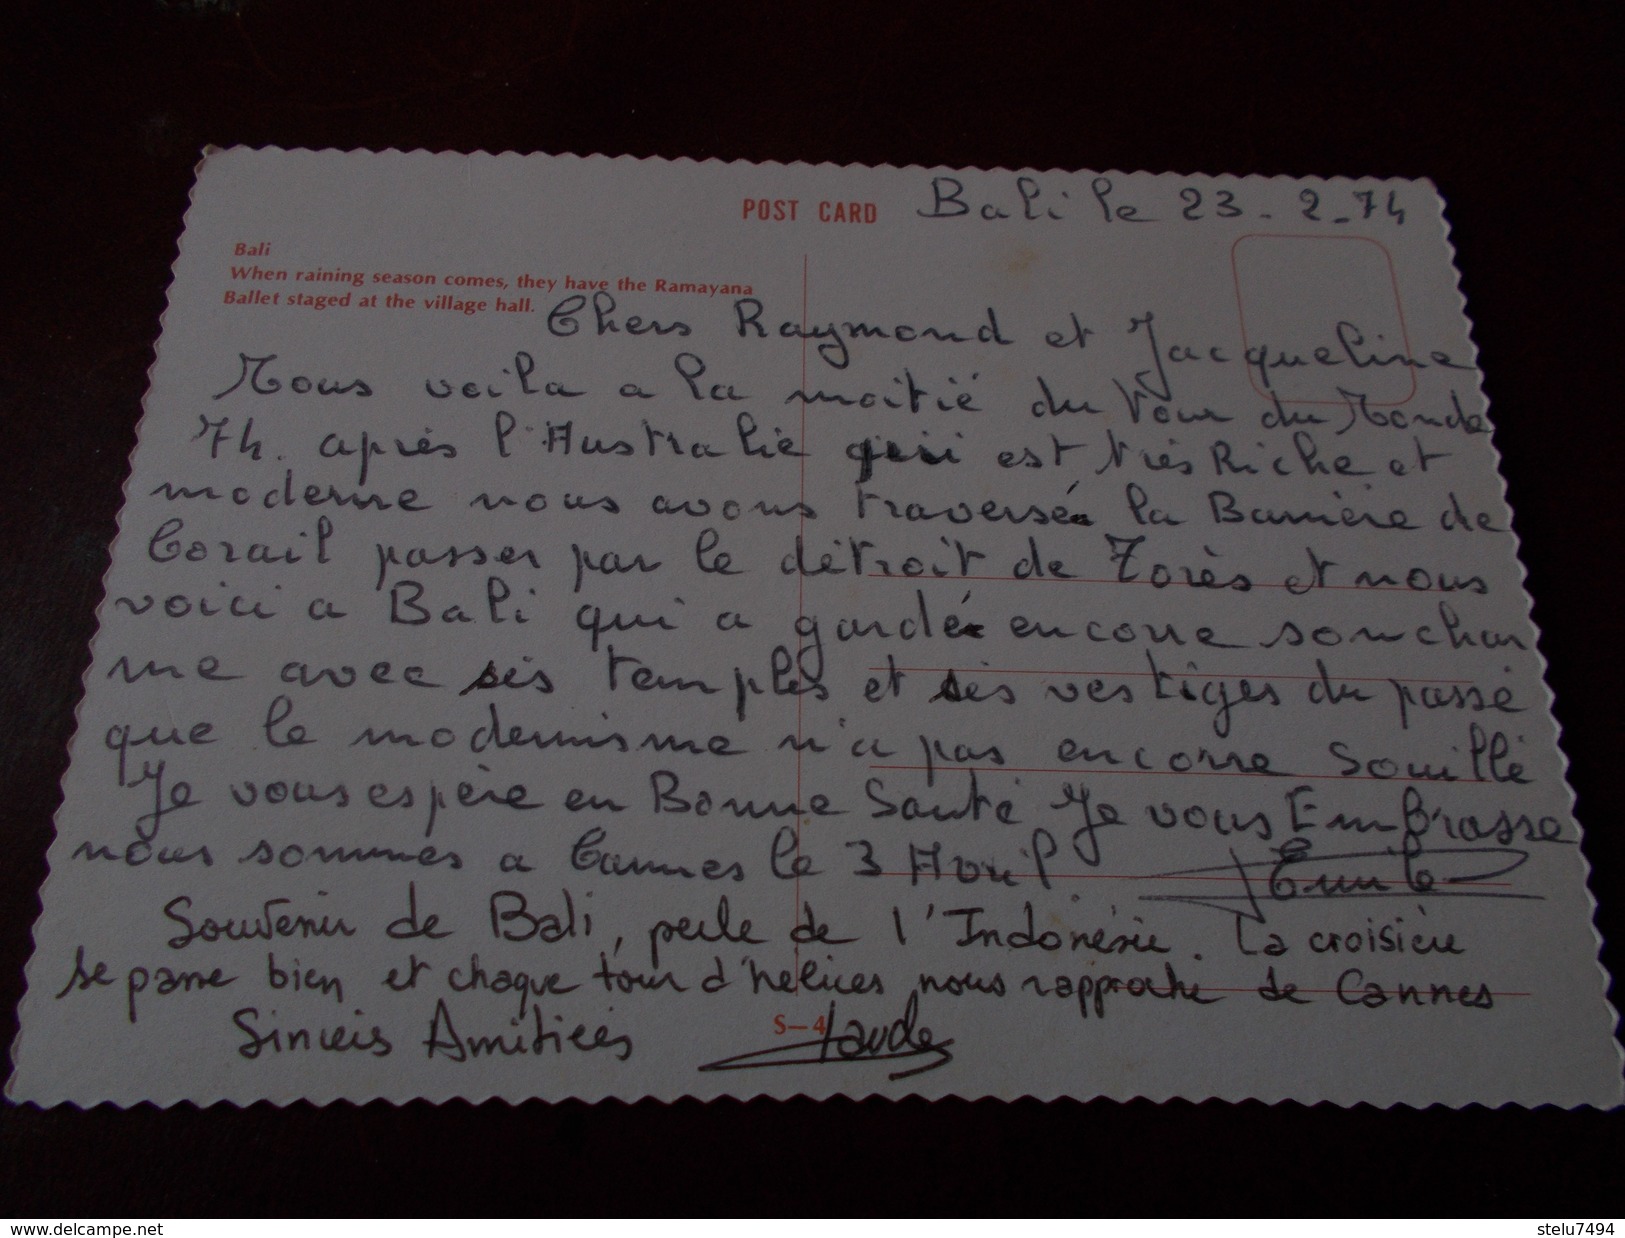 POST CARD
Bali le 23-2-74
Bali
When raining season comes, they have the Ramayana
Ballet staged at the village hall.
Chers Raymond et Jacqueline
Nous voila a la moitié du Tour du Monde
74. après l'Australie qui est très Riche et
moderne nous avons traversé la Barrière de
Corail passer par le détroit de Torès et nous
voici a Bali qui a gardé encorre son char
me avec sès temples et sès vestiges du passé
que le modernisme n'a pas encorre souillé
Je vous espère en Bonne Santé Je vous Embrasse
nous sommes a Cannes le 3 Avril.
Souvenir de Bali, perle de l'Indonésie. La croisière
se passe bien et chaque tour d'hélices nous rapproche de Cannes
Sincères Amitiées
S-4
www.delcampe.net
stelu7494